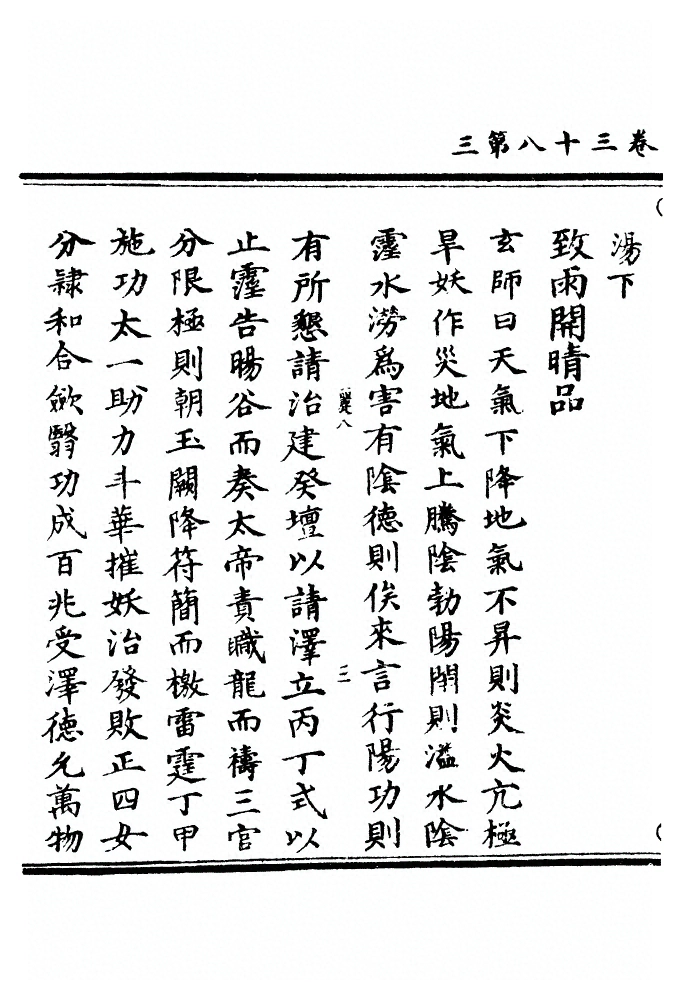 卷三十八第三
湯下
致雨開晴品
玄師曰天氣下降地氣不昇則炎火亢極
旱妖作災地氣上騰陰勃陽閉則溢水陰
霪水澇為害有陰德則俟來言行陽功則
二
有所懇請治建癸壇以請澤立丙丁式以
止霪告暘谷而奏太帝責職龍而禱三官
分限極則朝玉闕降符簡而檄雷霆丁甲
施功太一助力斗華摧妖治發敗正四女
分隸和合歛翳功成百兆受澤德允萬物